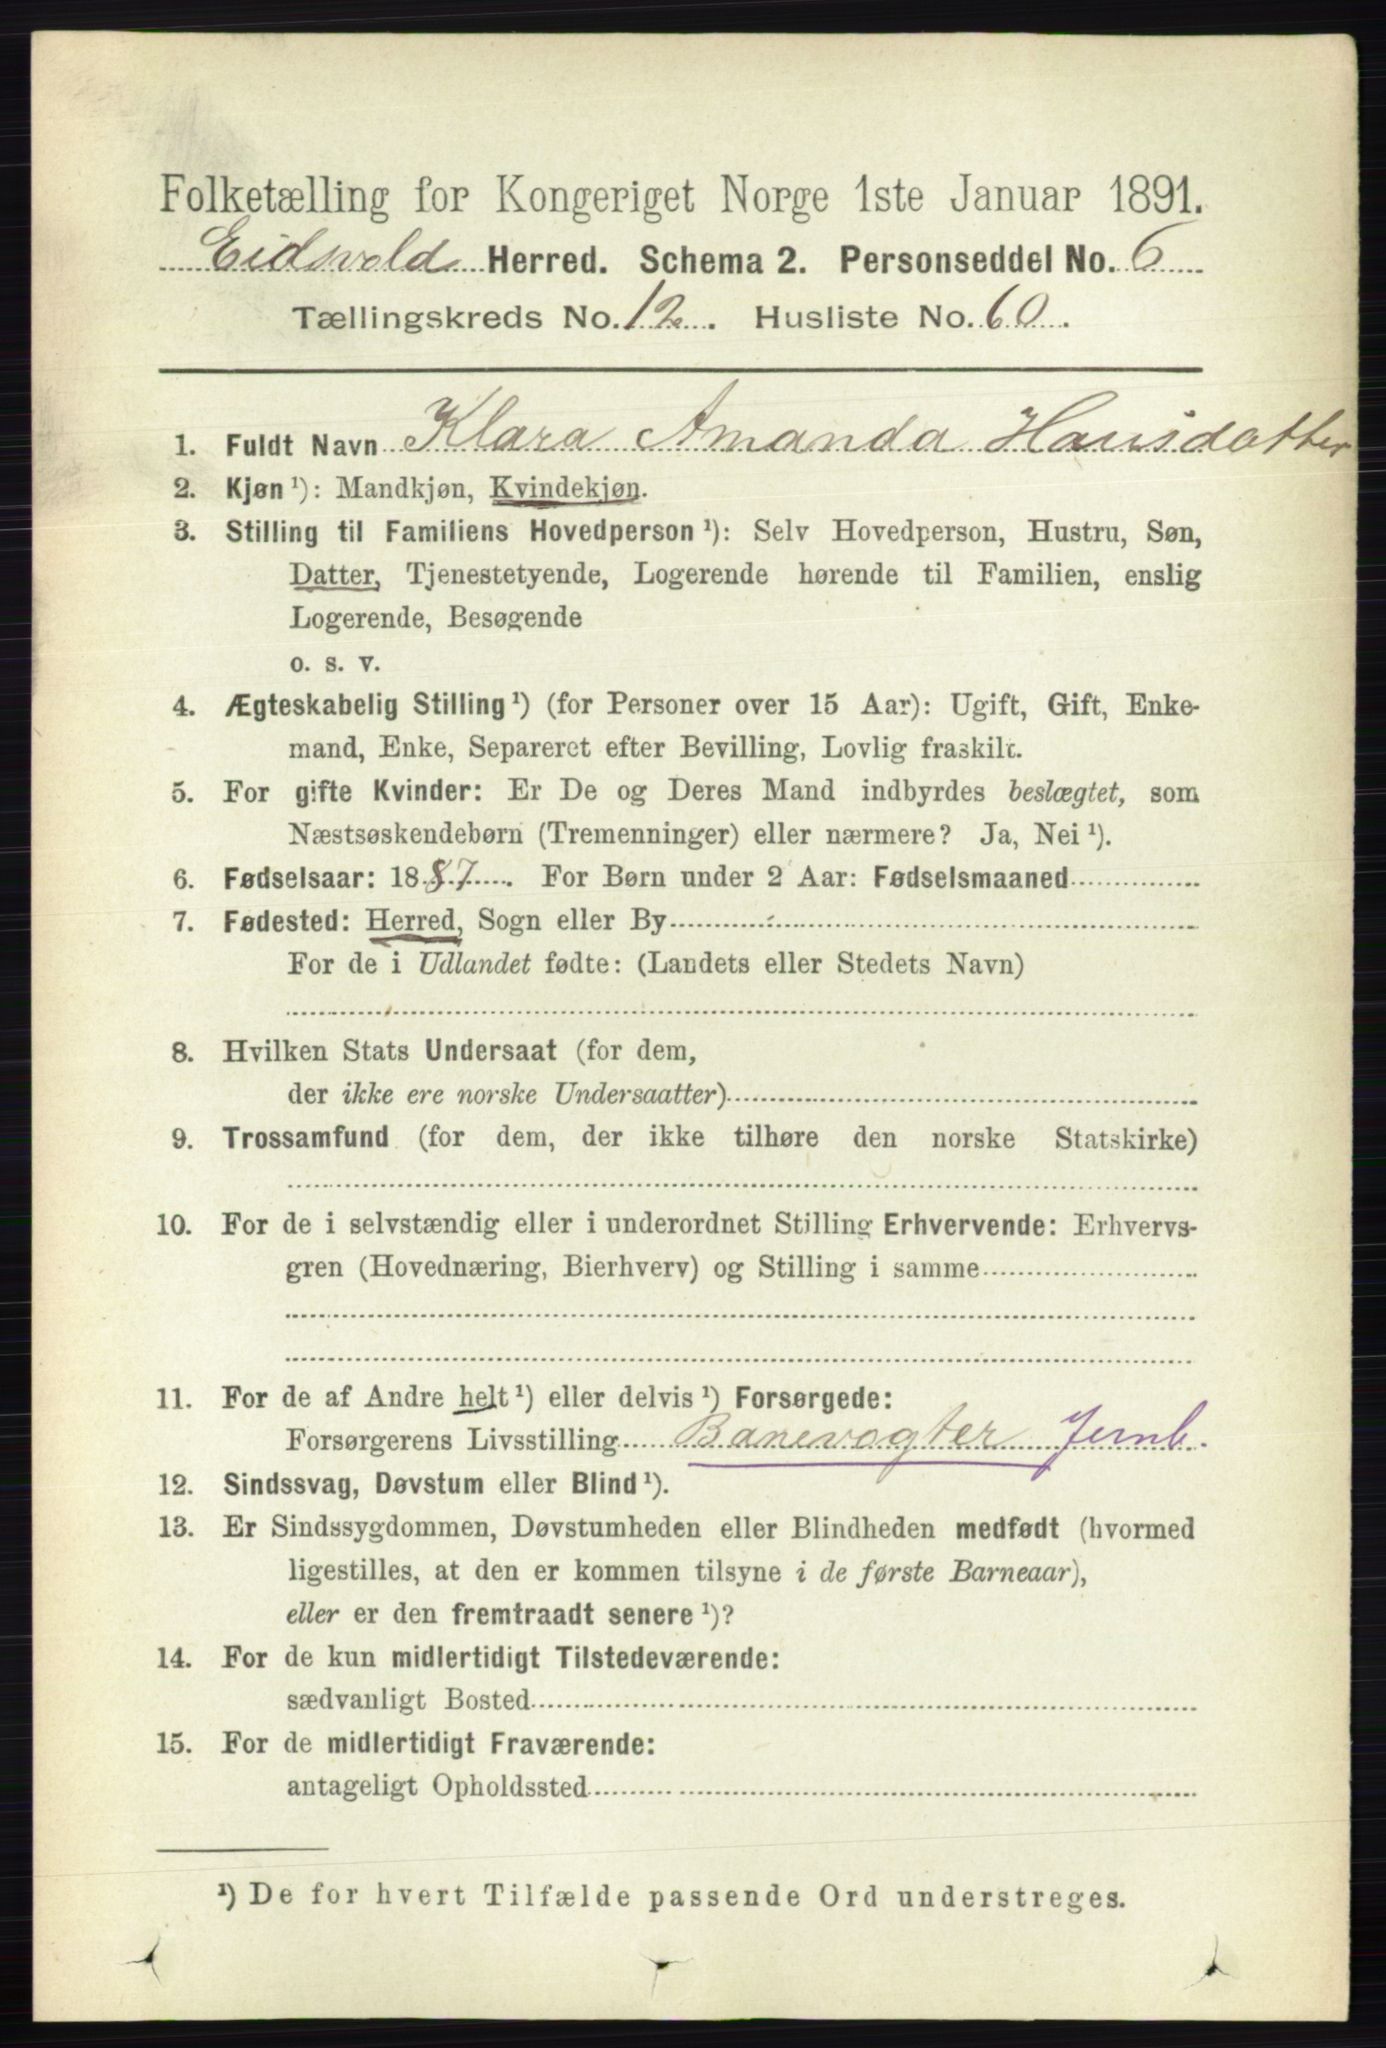 Folketælling for Kongeriget Norge 1ste Januar 1891.
Eidsvold Herred. Schema 2. Personseddel No. 6
Tællingskreds No. 12. Husliste No. 60.
1. Fuldt Navn Klara Amanda Hansdatter
2. Kjøn ¹): Mandkjøn, Kvindekjøn.
3. Stilling til Familiens Hovedperson ¹): Selv Hovedperson, Hustru, Søn,
Datter, Tjenestetyende, Logerende hørende til Familien, enslig
Logerende, Besøgende
o. s. v.
4. Ægteskabelig Stilling ¹) (for Personer over 15 Aar): Ugift, Gift, Enke-
mand, Enke, Separeret efter Bevilling, Lovlig fraskilt.
5. For gifte Kvinder: Er De og Deres Mand indbyrdes beslægtet, som
Næstsøskendebørn (Tremenninger) eller nærmere? Ja, Nei ¹).
6. Fødselsaar: 1887. For Børn under 2 Aar: Fødselsmaaned
7. Fødested: Herred, Sogn eller By
For de i Udlandet fødte: (Landets eller Stedets Navn)
8. Hvilken Stats Undersaat (for dem,
der ikke ere norske Undersaatter)
9. Trossamfund (for dem, der ikke tilhøre den norske Statskirke)
10. For de i selvstændig eller i underordnet Stilling Erhvervende: Erhvervs-
gren (Hovednæring, Bierhverv) og Stilling i samme
11. For de af Andre helt ¹) eller delvis ¹) Forsørgede:
Forsørgerens Livsstilling Banevogter Jernb.
12. Sindssvag, Døvstum eller Blind ¹).
13. Er Sindssygdommen, Døvstumheden eller Blindheden medfødt (hvormed
ligestilles, at den er kommen tilsyne i de første Barneaar),
eller er den fremtraadt senere ¹)?
14. For de kun midlertidigt Tilstedeværende:
sædvanligt Bosted
15. For de midlertidigt Fraværende:
antageligt Opholdssted
¹) De for hvert Tilfælde passende Ord understreges.